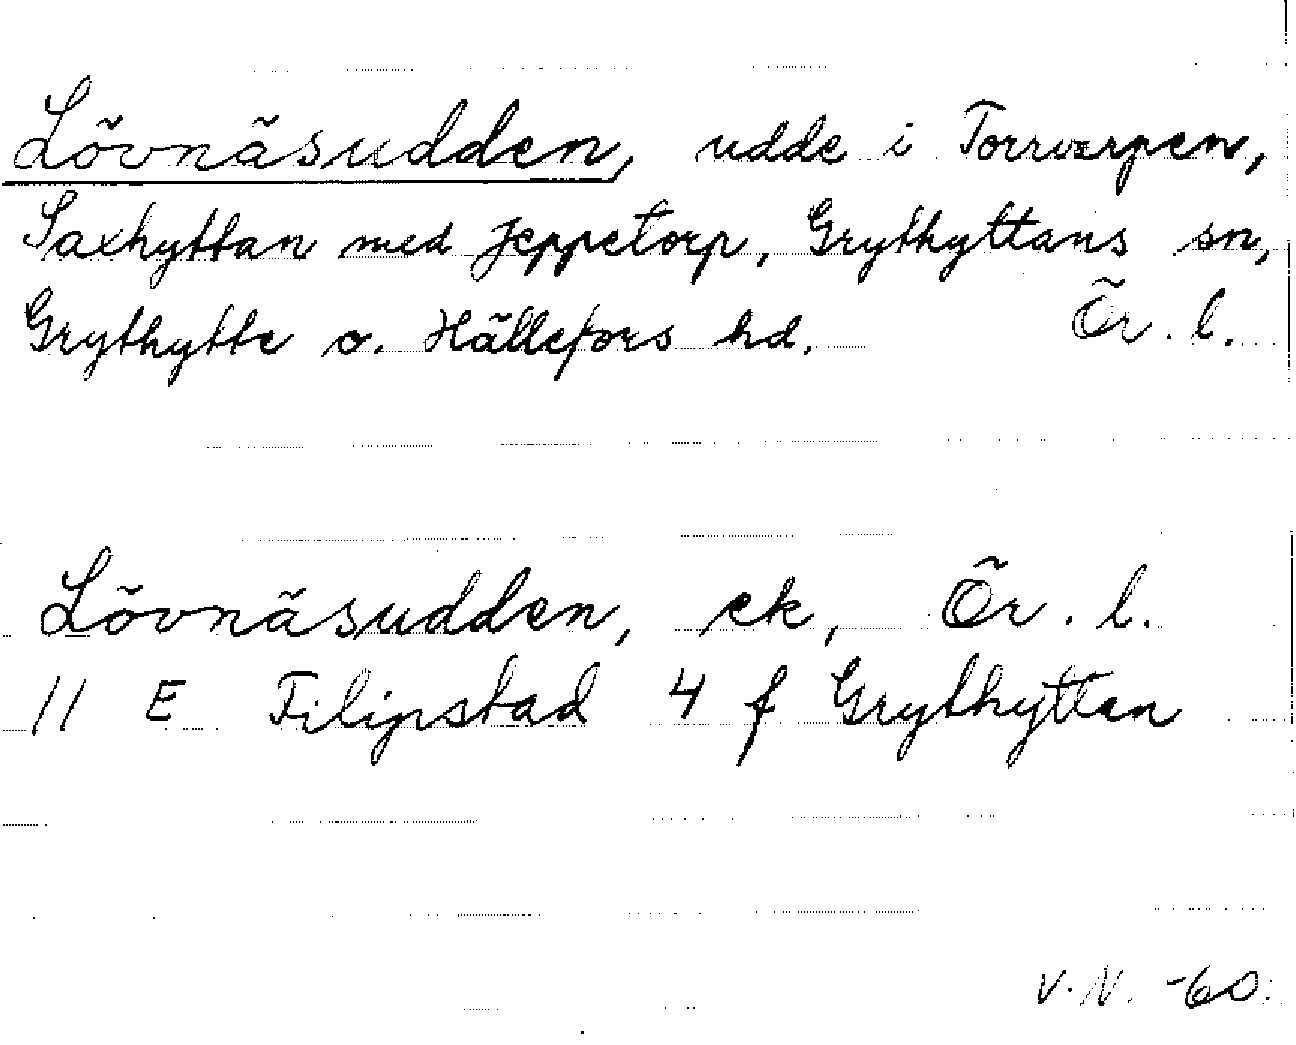 Lövnäsudden, udde i Torrvarpen,
Saxhyttan med Jeppetorp, Grythyttans sn,
Grythytte o. Hällefors hd. Ör. l.
Lövnäsudden, ek, Ör. l.
11 E Filipstad 4 f Grythyttan
V. N. -60.